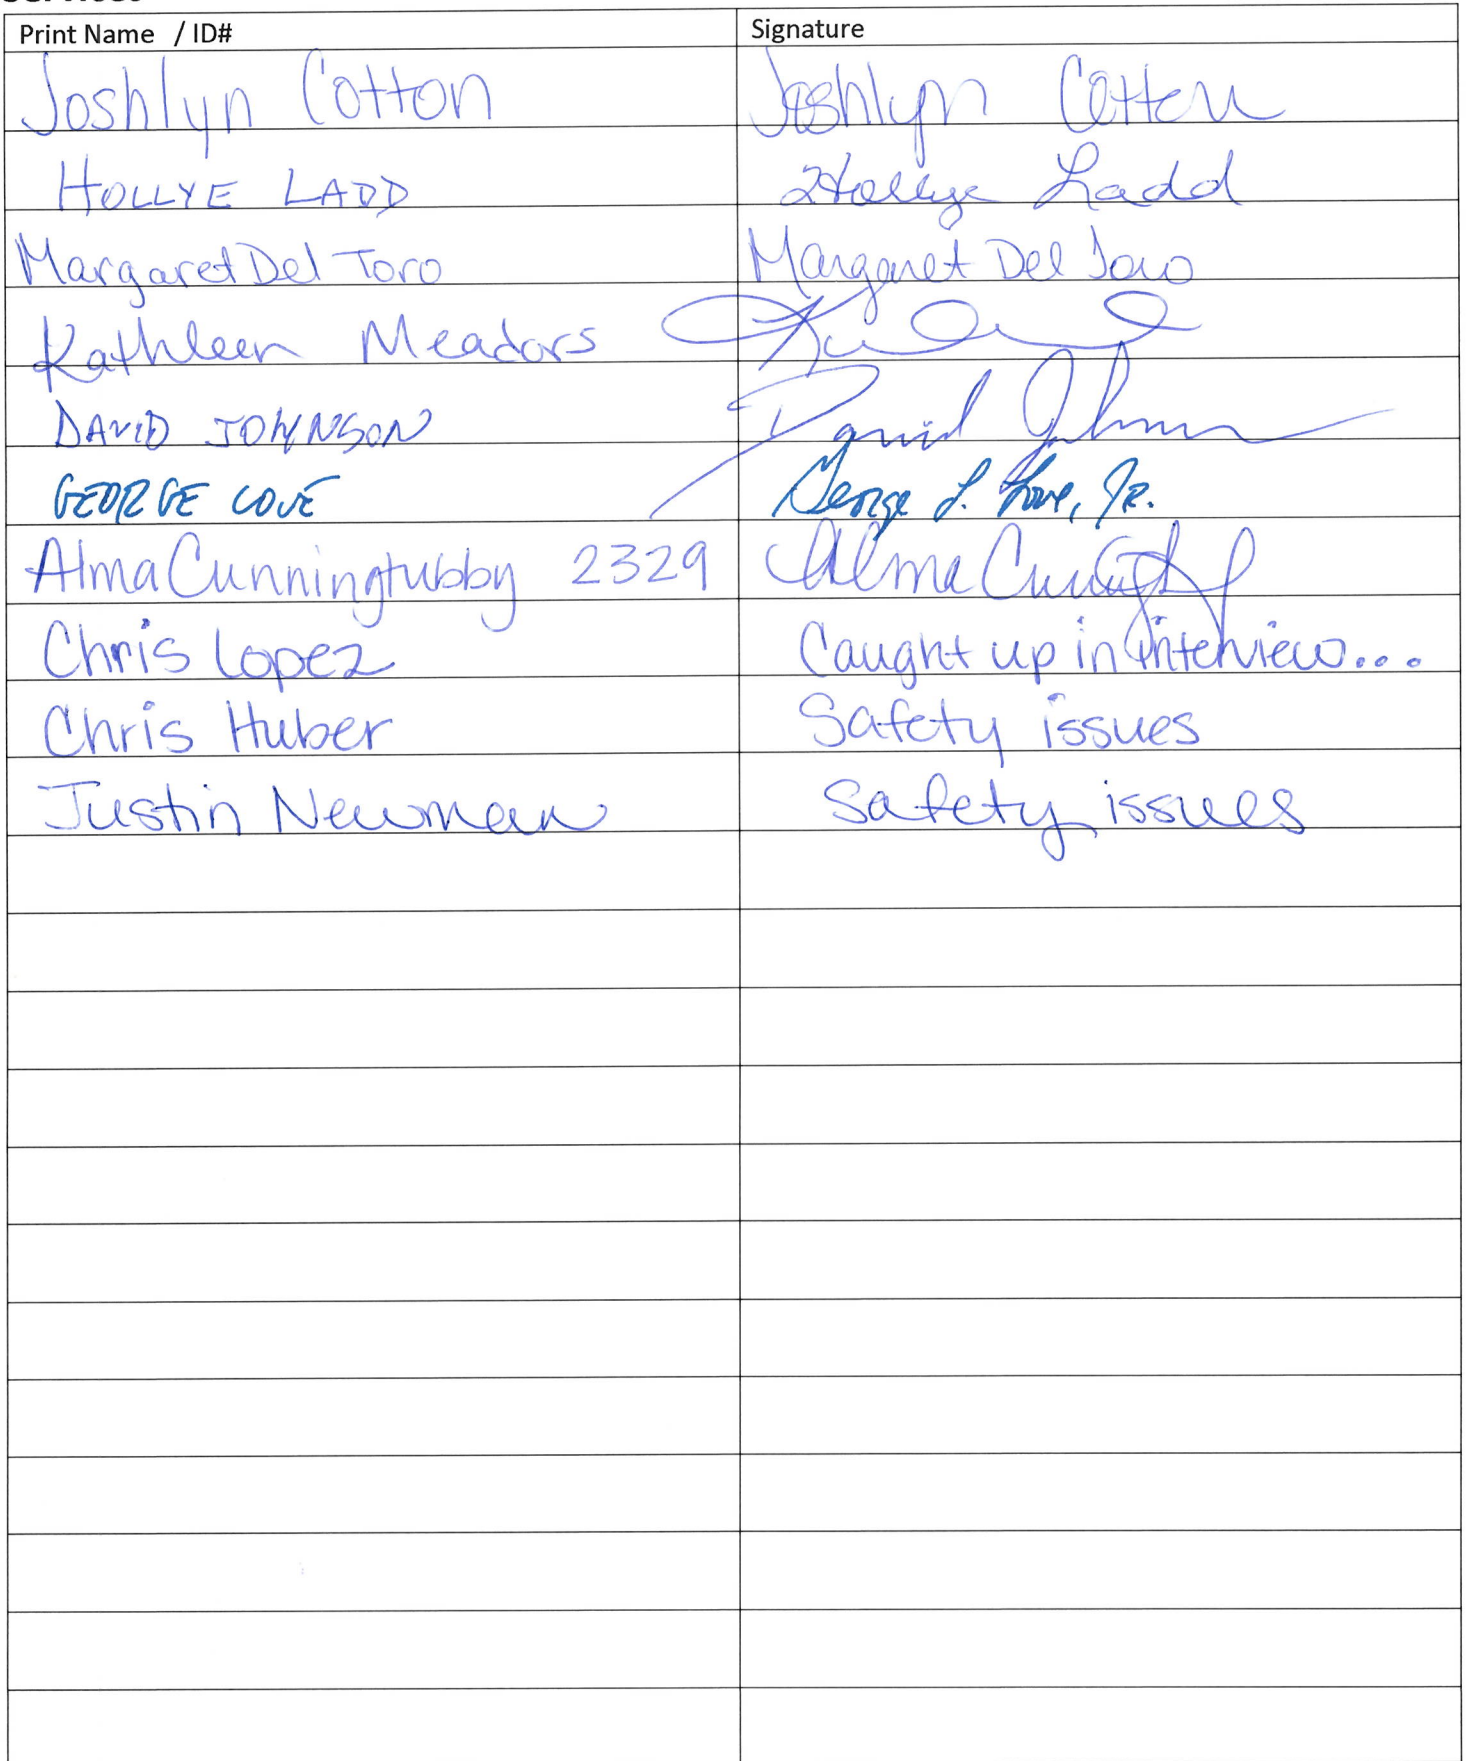 Print Name / ID# Signature
Joshlyn Cotton Joshlyn Cotton
HOLLYE LADD Hollye Ladd
Margaret Del Toro Margaret Del Toro
Kathleen Meadors
DAVID JOHNSON David Johnson
GEORGE LOVE George L. Love, Jr.
Alma Cunningtubby 2329 Alma
Chris Lopez Caught up in interview...
Chris Huber Safety issues
Justin Newman Safety issues